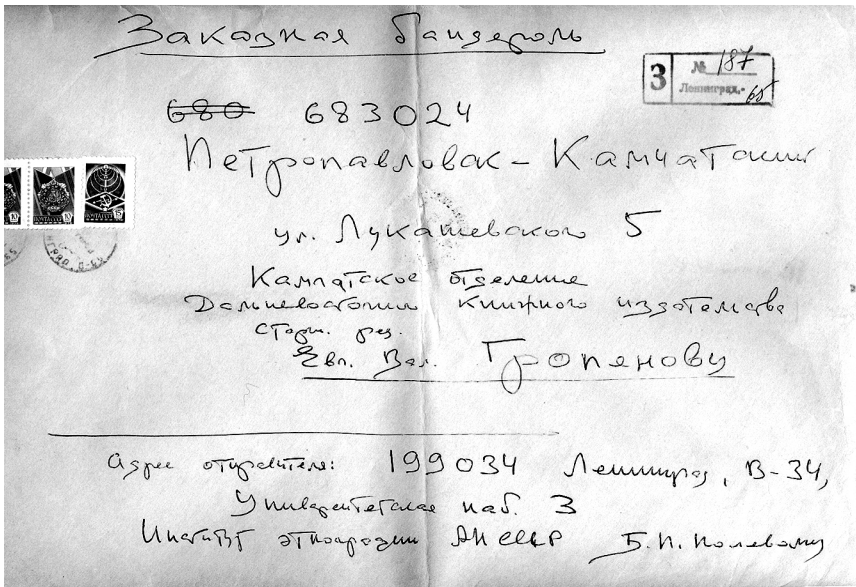 Заказная бандероль
З № 187
Ленинград,- 65
680 683024
Петропавловск-Камчатский
ПОЧТА СССР 15
ул. Лукашевского 5
Камчатское отделение
Дальневосточного книжного издательства
старш. ред.
Евг. Вал. Гропянову
Адрес отправителя: 199034 Ленинград, В-34,
Университетская наб. 3
Институт этнографии АН СССР Б.П. Полевому